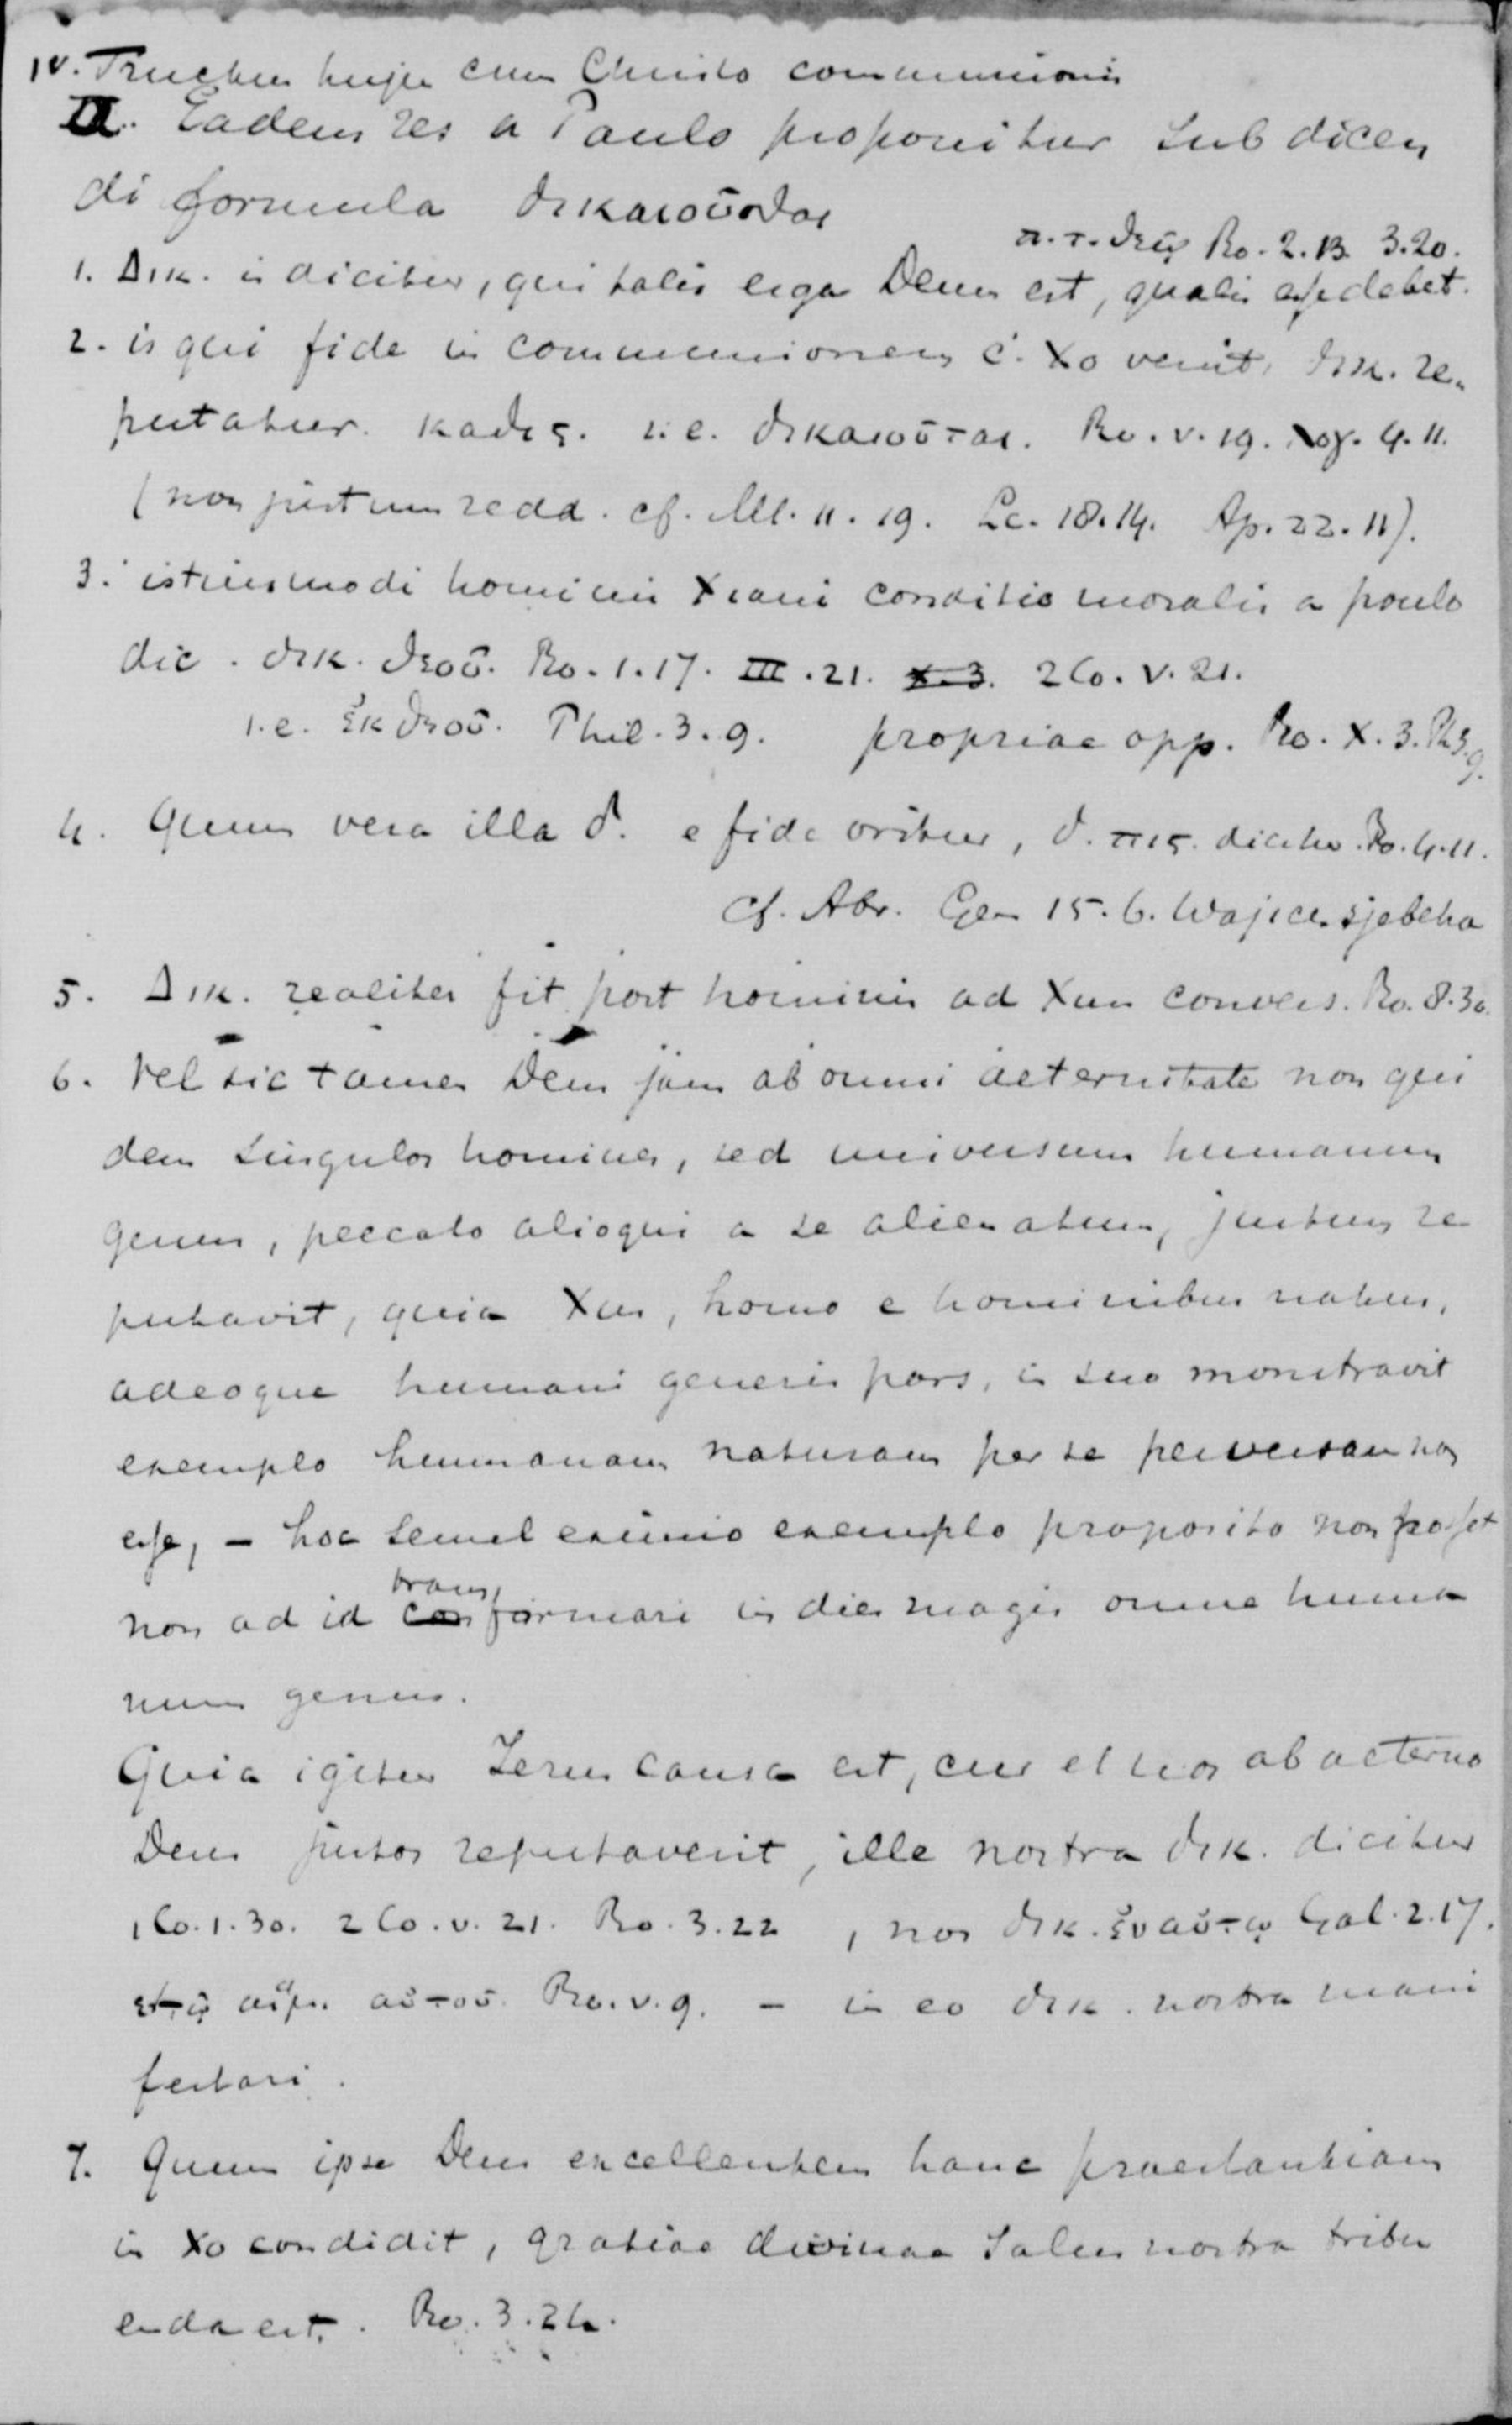 IV. Fructus hujus cum Christo communionis
II. Eadem res a Paulo proponitur sub dicen
di formula δικαιοῦσθαι
π. τ. θεῷ Ro. 2. 13. 3.20.
1. Δικ. is dicitur, qui talis erga Deum est, qualis esse debet.
2. is qui fide in communionem c. Xo venit, δικ. re-
putatur. καθις. i.e. δικαιοῦται. Ro. v. 19. λογ. 4. 11.
(non justum redd. cf. Mt. 11. 19. Lc. 18.14. Ap. 22. 11).
3. istiusmodi hominis Xiani conditio moralis a paulo
dic. δικ. θεοῦ. Ro. 1. 17. III. 21. x. 3. 2 Co. v. 21.
i.e. ἐκ θεοῦ. Phil. 3. 9. propriae opp. Ro. X. 3. Ph 3. 9.
4. Quum vera illa δ. e fide oritur, δ. πις. dicitur. Ro. 4. 11.
cf. Abr. Gen 15. 6.
5. Δικ. realiter fit post hominis ad Xum convers. Ro. 8. 30.
6. Vel sic tamen Deus jam ab omni aeternitate non qui
dem singulos homines, sed universum humanum
genus, peccato alioqui a se alienatum, justum re
putavit, quia Xus, homo e hominibus natus,
adeoque humani generis pars, in suo monstravit
exemplo humanam naturam per se perversam non
esse, – hoc semel eximio exemplo proposito non posset
non ad id con transformari in dies magis omne huma
num genus.
Quia igitur Jesus causa est, cur et nos ab aeterno
Deus justos reputaverit, ille nostra δικ. dicitur
1 Co. 1. 30. 2 Co. v. 21. Ro. 3. 22, nos δικ. ἐν αὐτῷ Gal. 2. 17.
αἵμ. αὐτοῦ. Ro. v. 9. – in eo δικ. nostra mani
festari.
7. Quum ipse Deus excellentem hanc praestantiam
in Xo condidit, gratiae divinae salus nostra tribu
enda est. Ro. 3. 24.